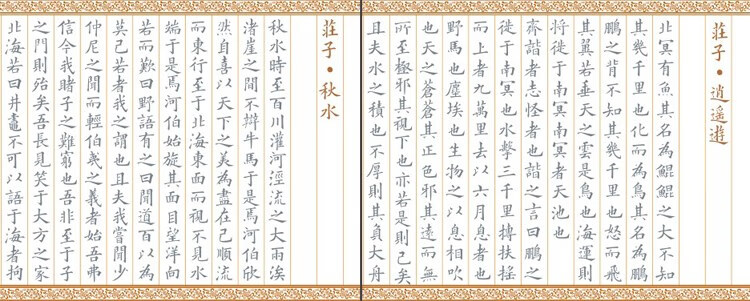 莊子•逍遥遊
北冥有魚其名為鯤鯤之大不知
其幾千里也化而為鳥其名為鵬
鵬之背不知其幾千里也怒而飛
其翼若垂天之雲是鳥也海運則
將徙于南冥南冥者天池也
齊諧者志怪者也諧之言曰鵬之
徙于南冥也水擊三千里摶扶搖
而上者九萬里去以六月息者也
野馬也塵埃也生物之以息相吹
也天之蒼蒼其正色邪其遠而無
所至極邪其視下也亦若是則已矣
且夫水之積也不厚則其負大舟
莊子•秋水
秋水時至百川灌河涇流之大兩涘
渚崖之間不辯牛馬于是焉河伯欣
然自喜以天下之美為盡在己順流
而東行至于北海東面而視不見水
端于是焉河伯始旋其面目望洋向
若而歎曰野語有之曰聞道百以為
莫己若者我之謂也且夫我嘗聞少
仲尼之聞而輕伯夷之義者始吾弗
信今我睹子之難窮也吾非至于子
之門則殆矣吾長見笑于大方之家
北海若曰井鼃不可以語于海者拘